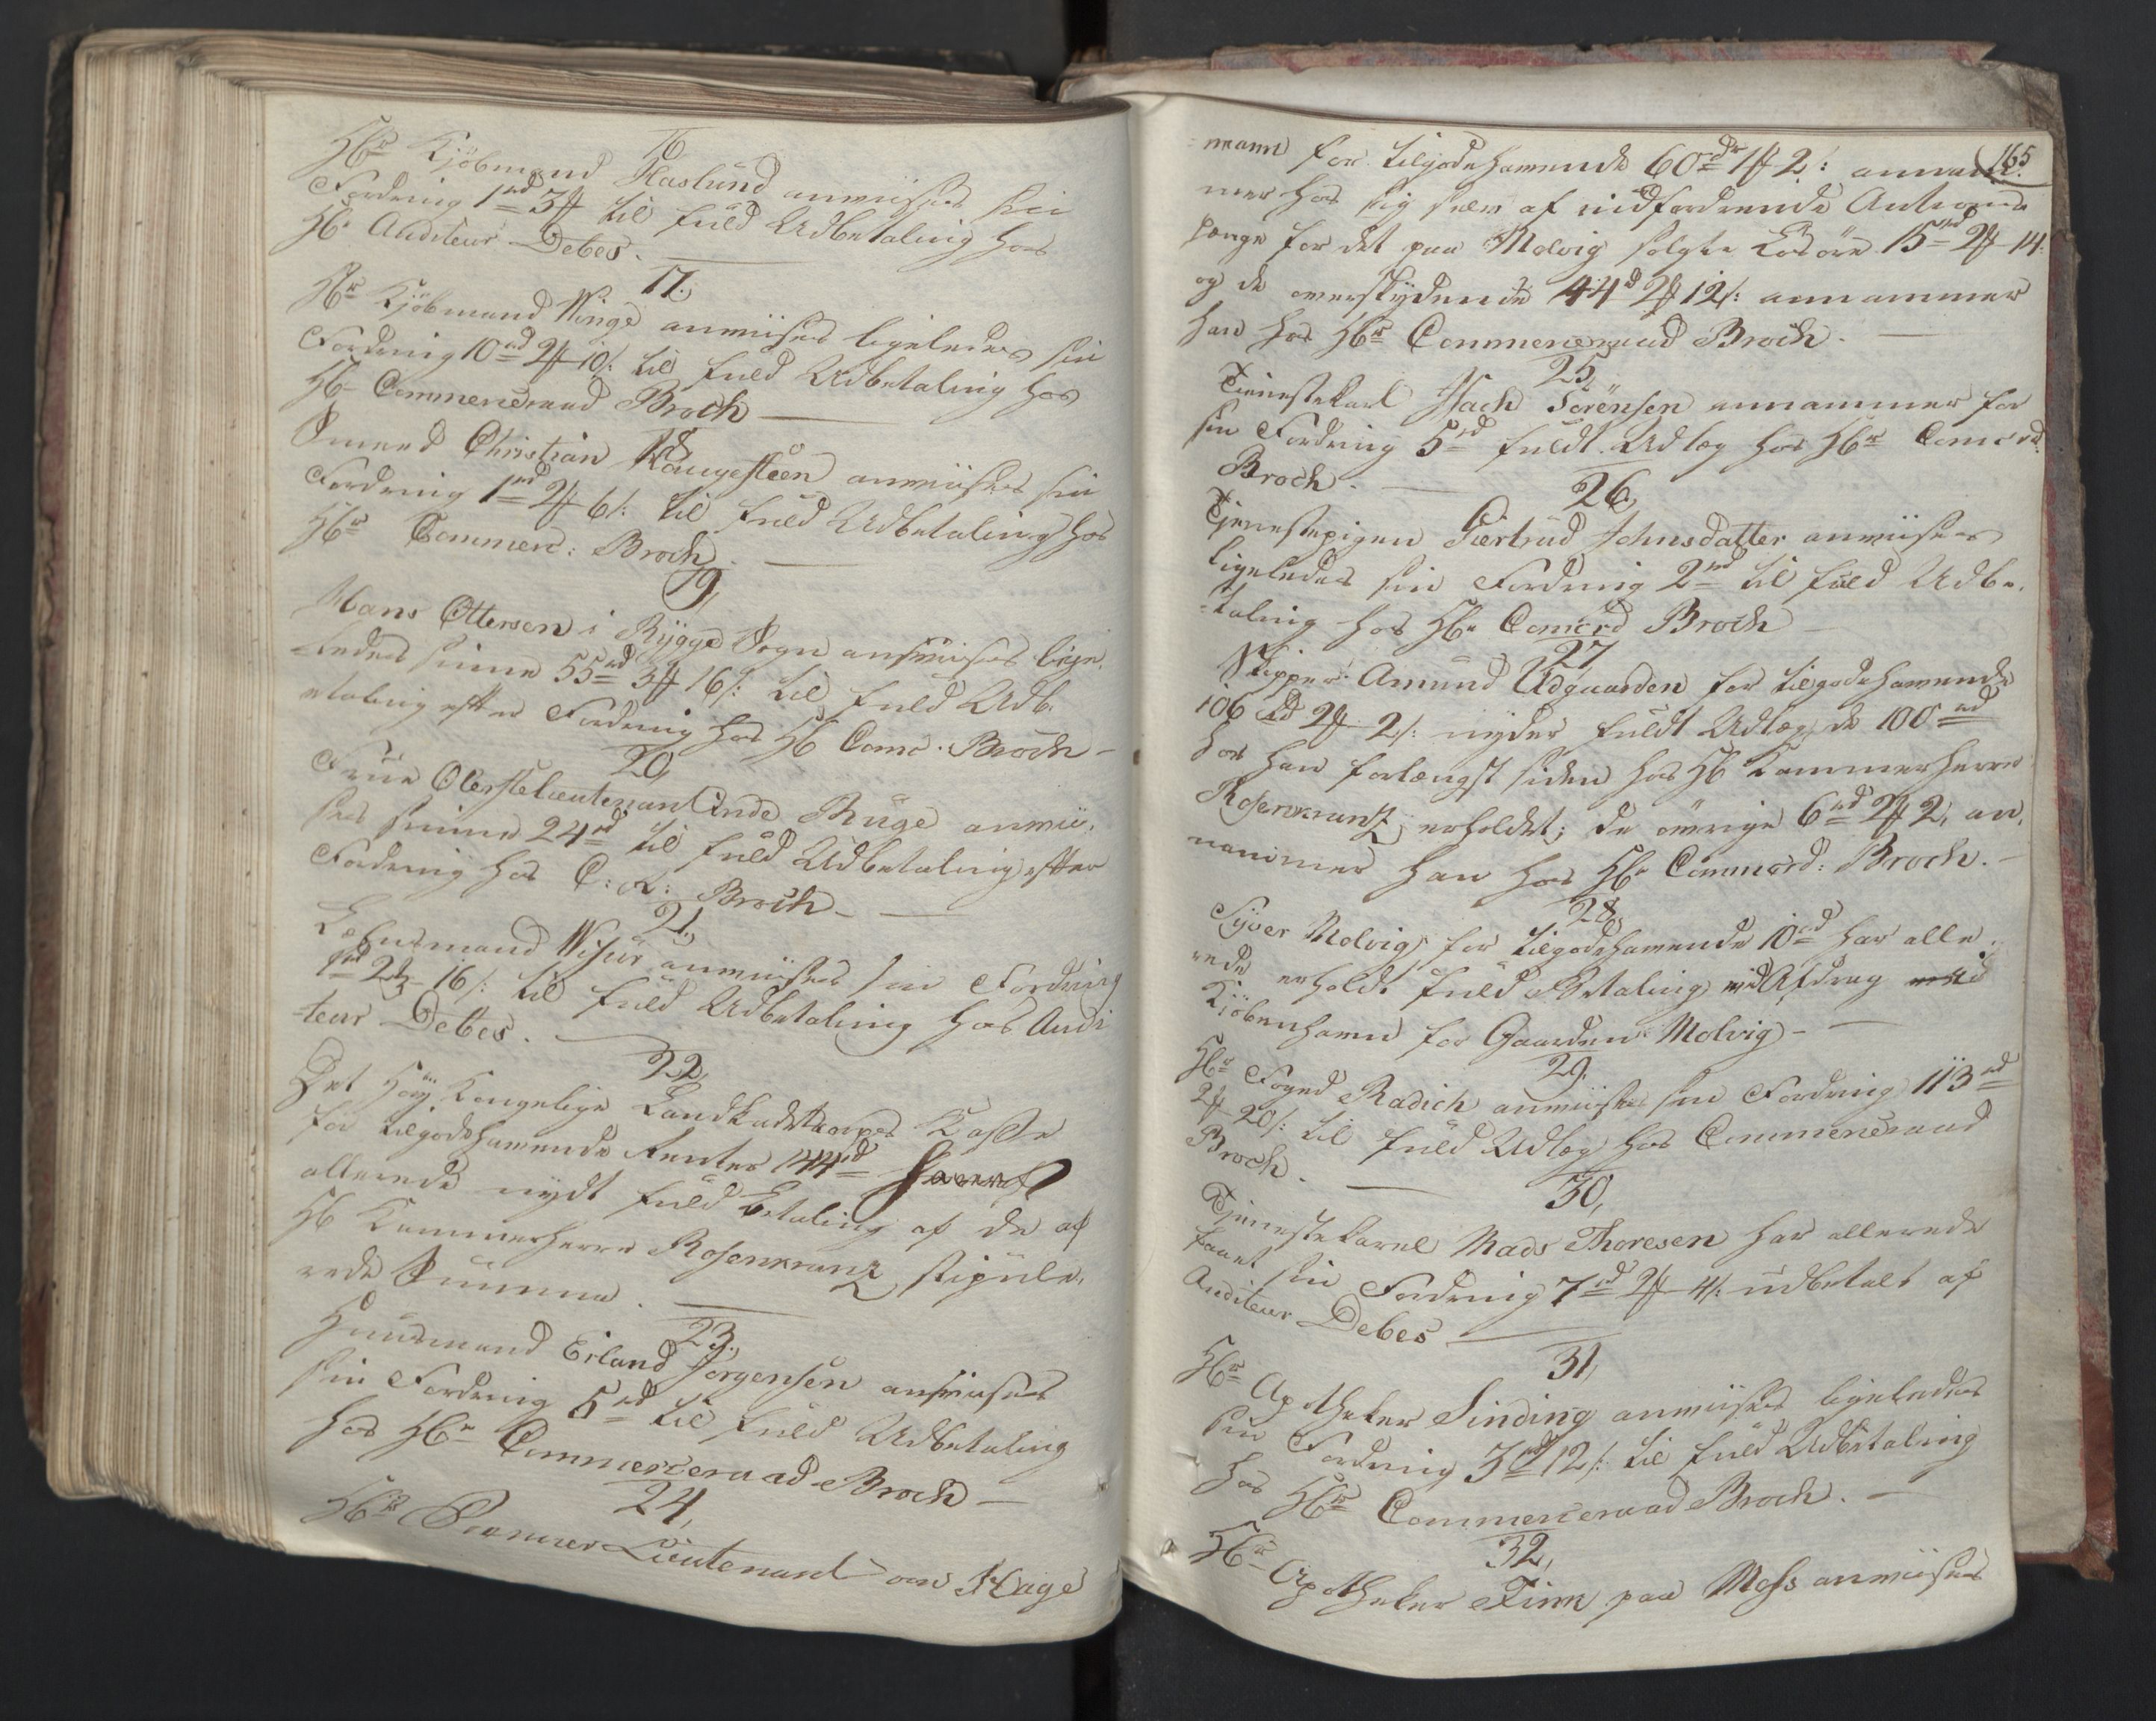 16
Hr Kjöbmand Haslund anviises sin
Fordring 1rd 3ß til fuld Udbetaling hos
Hr Auditeur Debes.
17.
Hr Kjöbmand Winge anviises ligeledes sin
Fordring 10rd 2ß 10/: til fuld Udbetaling hos
Hr Commerceraad Broch
18
Smeed Christian Kongesteen anviises sin
Fordring 1rd 2ß 6/: til fuld Udbetaling hos
Hr Commerc: Broch.
19,
Hans Ottersen i Rygge Sogn anviises lige-
ledes sinne 55rd 3ß 16/: til fuld Udb-
etaling efter Fordring hos Hr Comc. Broch
20,
Frue Oberstelieutenantinde Rüge anvii-
ses sinne 24rd til fuld Udbetaling efter
Fordring hos C: R: Broch
21,
Lehnsmand Wisür anviises sin Fordring
1rd 2ß 16/: til fuld Udbetaling hos Audi
-teur Debes.
22,
Det Kongelige Landkadetkorpses Kasse
for tilgodehavende Renter 144rd har
allerede nydt fuld Betaling af de af
Hr Kammerherre Rosenkranz stipule-
rede Summa.
23.,
Huusmand Erland Jörgensen anviises
sin Fordring 5rd til fuld Udbetaling
hos Hr Commerceraad Broch
24,
Hr Premier Lieutenant von Krige
165.
mand for tilgodehavende 60rd 1ß 2/: annam-
mer hos sig selv af indfordrende Auctions
penge for det paa Molvig solgte Lösöre 15rd 2ß 14.
og de overskydende 44rd 2ß 12/: annammer
han hos Hr Commerceraad Broch.
25,
Tienestekarl Isach Sörensen annammer for
sin Fordring 5rd fuldt Udlæg hos Hr Comcrd
Broch.
26,
Tjenestepigen Giertrud Johnsdatter anviises
ligeledes sin Fordring 2rd til fuld Udbe-
-taling hos Hr Comcrd Broch
27,
Skipper Amund Udgaarden for tilgodehavende
106rd 2ß 2/: nyder fuldt Udlæg, de 100rd
har han forlængst siden hos Hr Kammerherre
Rosenkrantz erholdet; de övrige 6rd 2ß 2, an-
nammer han hos Hr Commerd: Broch.
28,
Syver Molvig for tilgodehavende 10rd har alle-
rede erholdt fuld Betaling ved Afdrag
Kiöbenhavn for Gaarden Molvig
29.
Hr Foged Radich anviises sin Fordring 113rd
2ß 20/: til fuld Udlæg hos Commerceraad
Broch.
30,
Tjenestekarl Mads Thoresen har allerede
faaet sin Fordring 7rd 2ß 4/: udbetalt af
Auditeur Debes
31,
Hr Apotheker Sinding anviises ligeledes
sin Fordring 3rd 12/: til fuld Udbetaling
hos Hr Commerceraad Broch.
32,
Hr Apotheker Finn paa Moss anviises